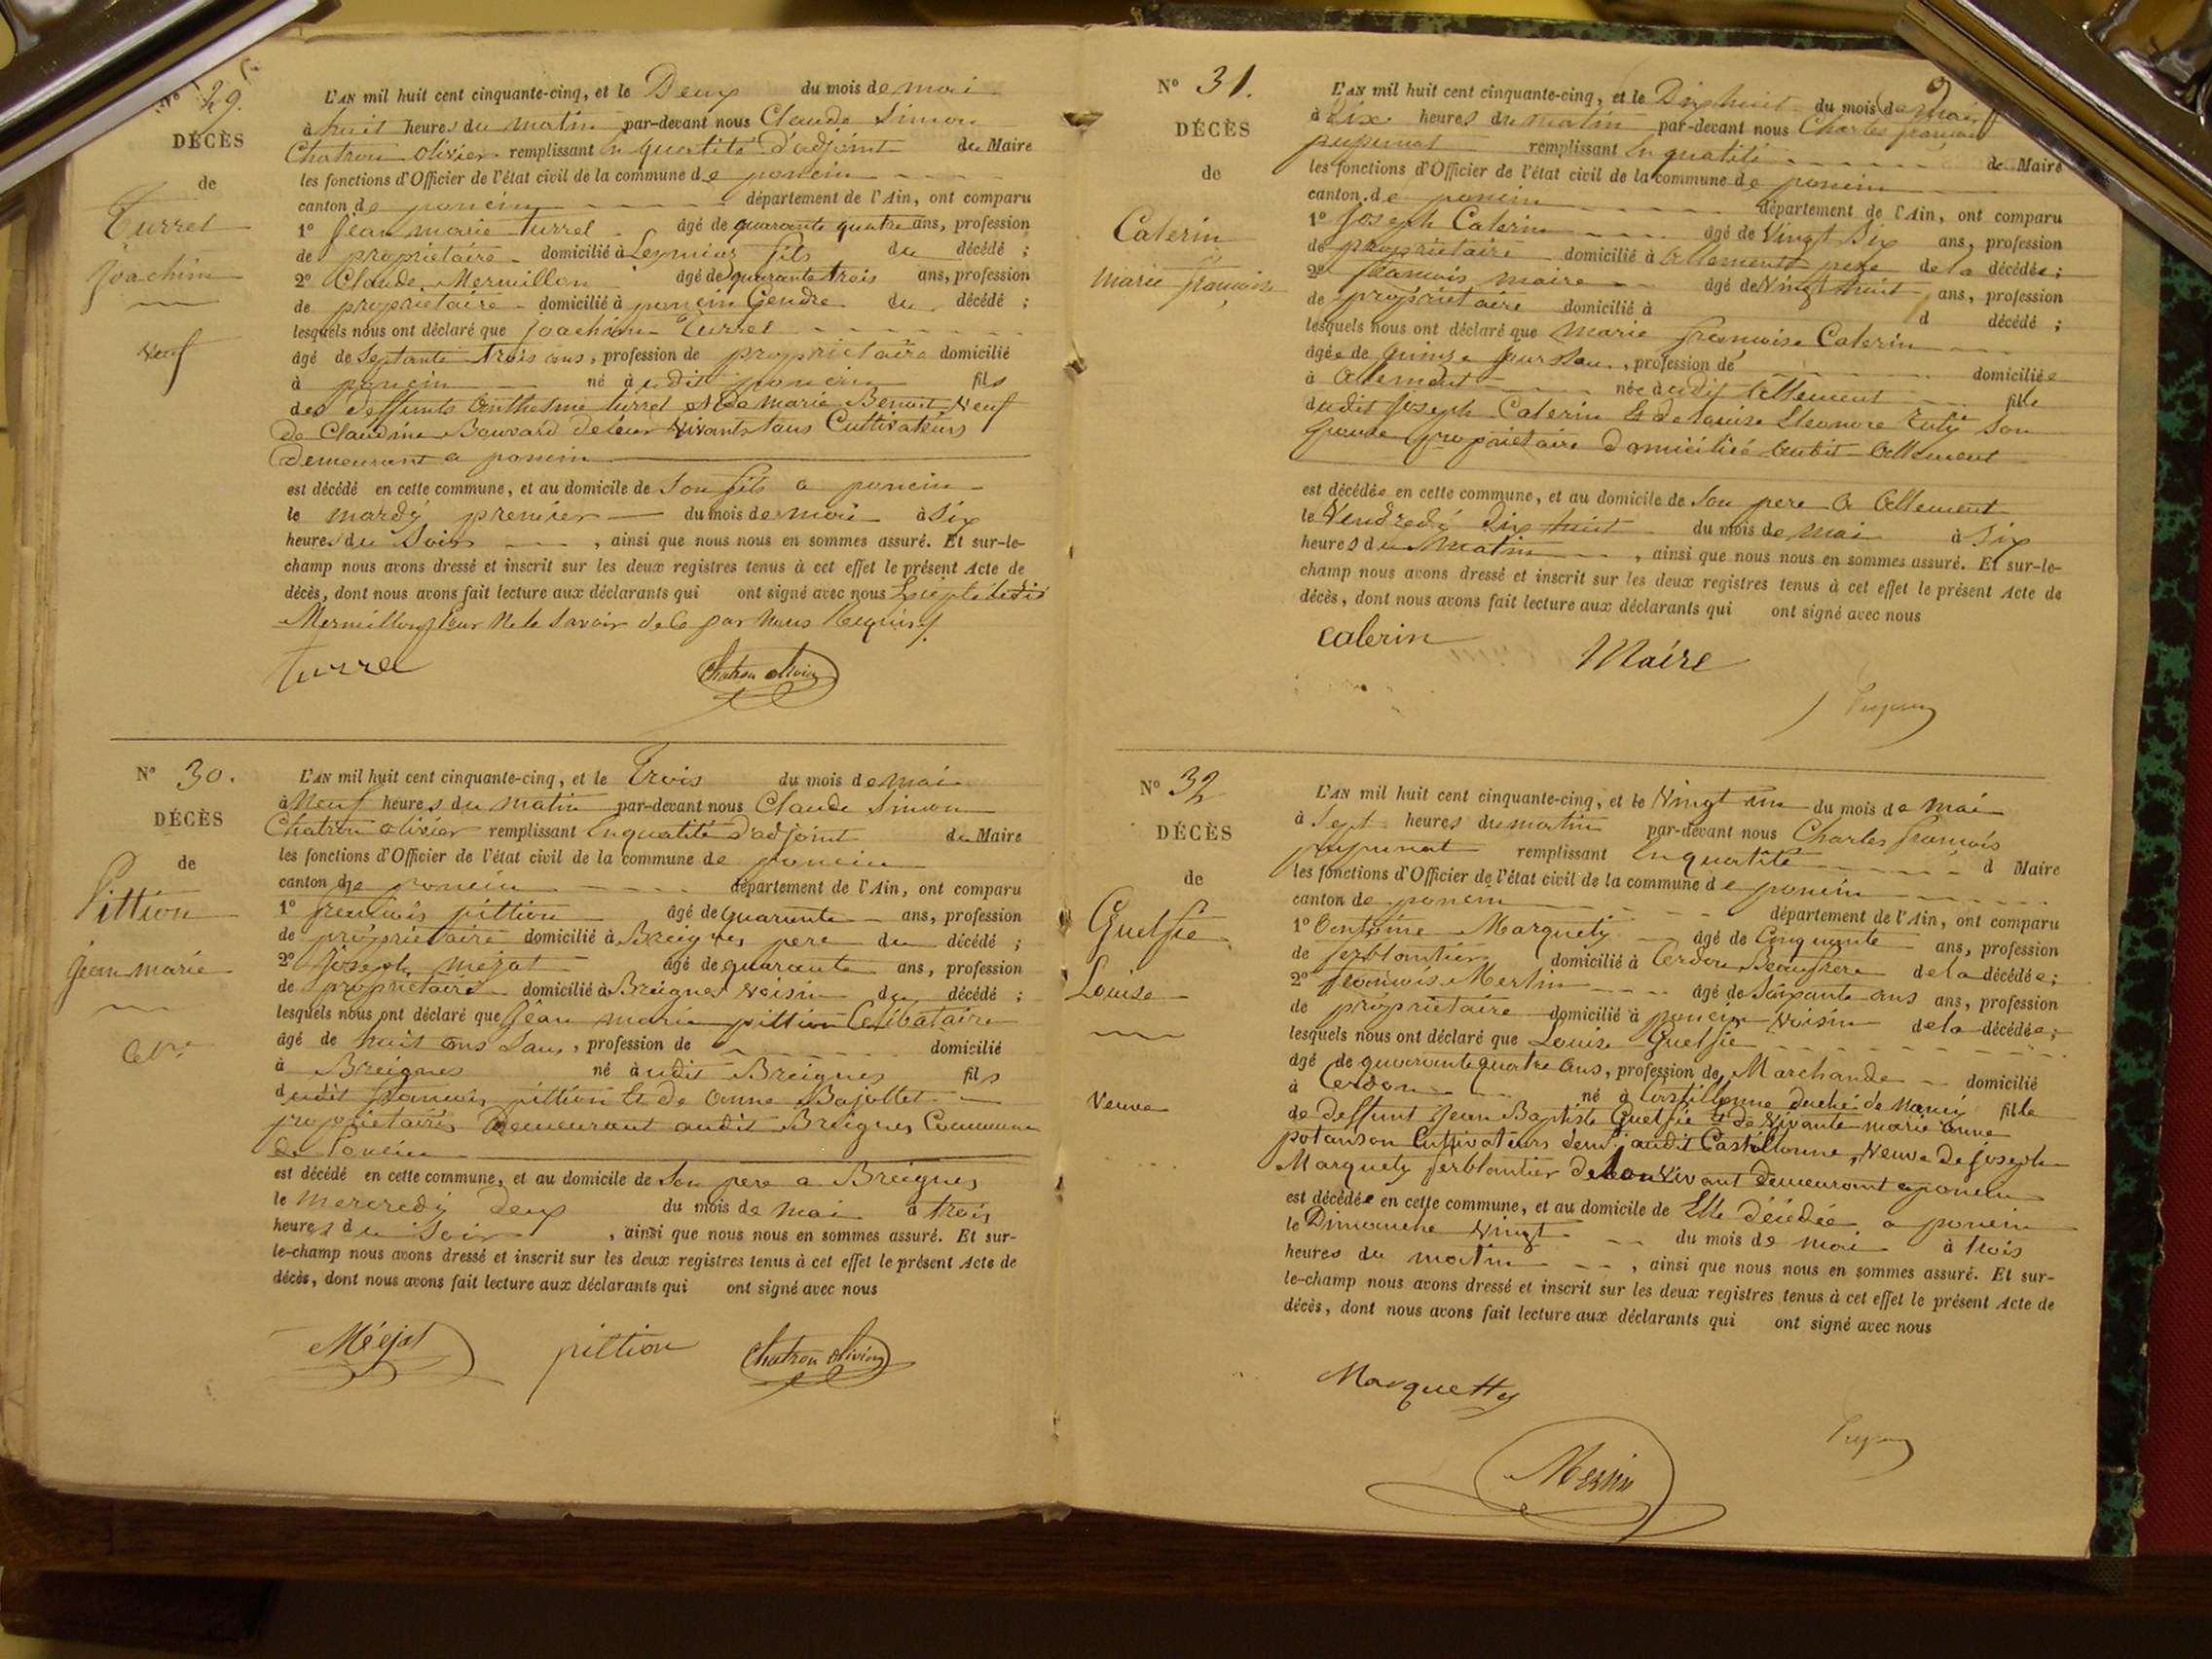 N° 29.
DÉCÈS
de
Turrel
Joachim
Veuf
L'AN mil huit cent cinquante-cinq, et le Deux du mois de mai
à huit heures du matin par-devant nous Claude Simon
Chatron olivier remplissant en qualité d'adjoint du Maire
les fonctions d'Officier de l'état civil de la commune de poncin
canton de poncin département de l'Ain, ont comparu
1° Jean marie turrel âgé de quarante quatre ans, profession
de propriétaire domicilié à Leymiat fils du décédé ;
2° Claude Mermillon âgé de quarante trois ans, profession
de propriétaire domicilié à poncin Gendre du décédé ;
lesquels nous ont déclaré que joachim Turrel
âgé de Septante trois ans, profession de propriétaire domicilié
à poncin né àudit poncin fils
des deffunts Anthelme turrel et de marie Benoit Veuf
De Claudine Bouvard de leur vivants tous Cultivateurs
Demeurant a poncin
est décédé en cette commune, et au domicile de Son fils a poncin
le mardy premier du mois de mai à Six
heures du Soir , ainsi que nous nous en sommes assuré. Et sur-le-
champ nous avons dressé et inscrit sur les deux registres tenus à cet effet le présent Acte de
décès, dont nous avons fait lecture aux déclarants qui ont signé avec nous Excepté ledit
Mermillon pour ne le Savoir de ce par nous Requis
turrel
Chatron olivier
N° 30.
DÉCÈS
de
Pittion
Jean marie
L'AN mil huit cent cinquante-cinq, et le Trois du mois de mai
à Neuf heures du matin par-devant nous Claude Simon
Chatron olivier remplissant En qualité D'adjoint du Maire
les fonctions d'Officier de l'état civil de la commune de poncin
canton de poncin département de l'Ain, ont comparu
1° francois pittion âgé de quarante ans, profession
de propriétaire domicilié à Breignes pere du décédé ;
2° Joseph méjat âgé de quarante ans, profession
de propriétaire domicilié à Breignes Voisin du décédé ;
lesquels nous ont déclaré que Jean marie pittion Celibataire
âgé de huit ans , profession de domicilié
à Breignes né àudit Breignes fils
dudit francois pittion et de anne Bajollet
propriétaires Demeurant audit Breignes Commune
de Poncin
est décédé en cette commune, et au domicile de Son pere a Breignes
le mercredy deux du mois de mai à trois
heures du Soir , ainsi que nous nous en sommes assuré. Et sur-
le-champ nous avons dressé et inscrit sur les deux registres tenus à cet effet le présent Acte de
décès, dont nous avons fait lecture aux déclarants qui ont signé avec nous
Méjat pittion Chatron olivier
N° 31.
DÉCÈS
de
Caterin
marie françoise
L'AN mil huit cent cinquante-cinq, et le Dix huit du mois de mai
à Dix heures du matin par-devant nous Charles francois
pupunat remplissant En qualité de Maire
les fonctions d'Officier de l'état civil de la commune de poncin
canton de poncin département de l'Ain, ont comparu
1° Joseph Caterin âgé de Vingt Six ans, profession
de propriétaire domicilié à allement pere de la décédée ;
2° francois maire âgé de Vingt huit ans, profession
de propriétaire domicilié à d décédé ;
lesquels nous ont déclaré que Marie francoise Caterin
âgée de quinze jours , profession de domiciliée
à allement née àudit allement fille
dudit Joseph Caterin Et de louise Eleonore Son
Epouse propriétaire domicilié audit allement
est décédée en cette commune, et au domicile de Son pere a allement
le Vendredi Dix huit du mois de mai à Six
heures du matin , ainsi que nous nous en sommes assuré. Et sur-le-
champ nous avons dressé et inscrit sur les deux registres tenus à cet effet le présent Acte de
décès, dont nous avons fait lecture aux déclarants qui ont signé avec nous
Caterin
Maire
N° 32
DÉCÈS
de
Guelfie
Louise
Veuve
L'AN mil huit cent cinquante-cinq, et le Vingt un du mois de mai
à Sept heures du matin par-devant nous Charles francois
pupunat remplissant En qualité d Maire
les fonctions d'Officier de l'état civil de la commune de poncin
canton de poncin département de l'Ain, ont comparu
1° Antoine Marquety âgé de Cinquante ans, profession
de ferblantier domicilié à Cerdon Beaufrere de la décédée ;
2° francois Merlin âgé de Soixante ans ans, profession
de propriétaire domicilié à poncin Voisin de la décédée ;
lesquels nous ont déclaré que Louise Guelfie
âgé de quarante quatre ans, profession de Marchande domicilié
à Cerdon né à Castillonne Duché de fille
de deffunt Jean Baptiste Guelfie et de Vivante marie anne
potanson Cultivateurs audit Castillonne, Veuve de Joseph
Marquety ferblantier de son Vivant demeurant a poncin
est décédée en cette commune, et au domicile de Elle décédée a poncin
le Dimanche Vingt du mois de mai à trois
heures du matin , ainsi que nous nous en sommes assuré. Et sur-
le-champ nous avons dressé et inscrit sur les deux registres tenus à cet effet le présent Acte de
décès, dont nous avons fait lecture aux déclarants qui ont signé avec nous
Marquetty
Merlin